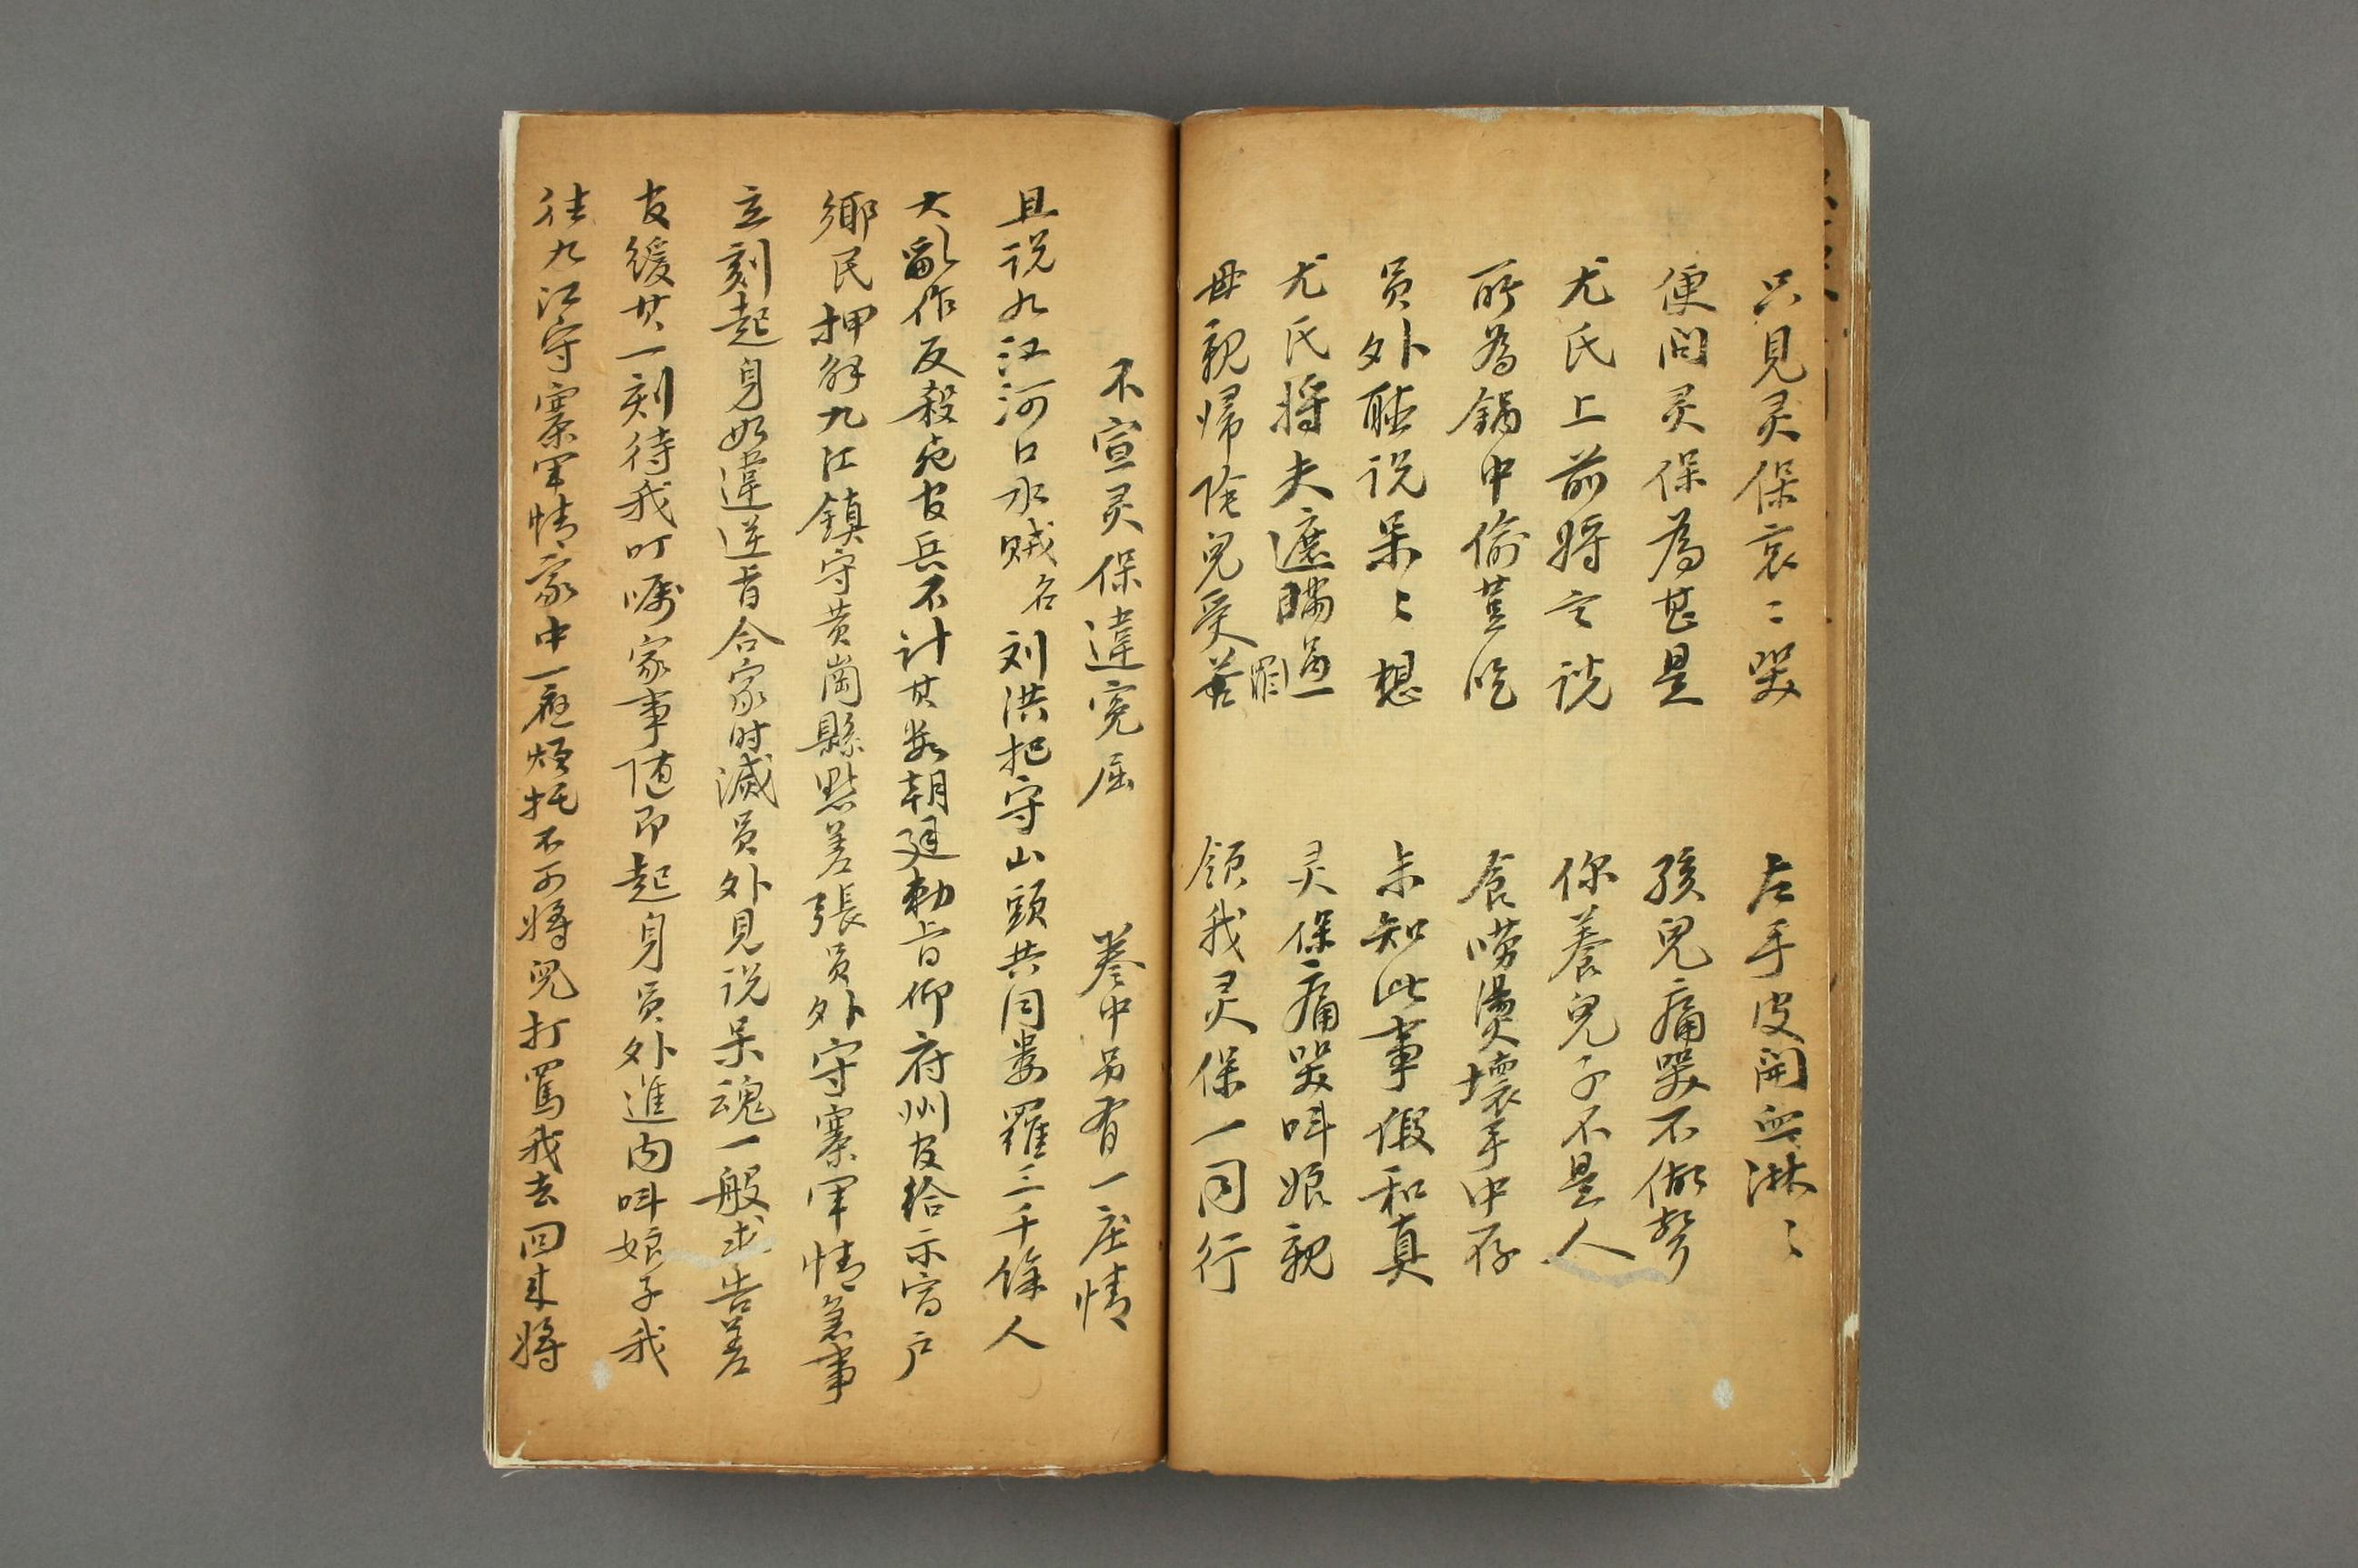 只見灵保哀〻哭 左手皮開血淋〻
便問灵保為甚是 孩兒痛哭不做聲
尤氏上前将言説 你養兒子不是人
所為鍋中偷荳吃 貪嘮燙壞手中存
員外聴说呆〻想 未知此事假和真
尤氏将夫遮瞞過 灵保痛哭呌娘親
毋親帰陰兒受苦罪 領我灵保一同行
不宣灵保違寃屈 卷中另有一庄情
且说九江河口水贼名刘洪把守山頭共同娄羅三千餘人
大亂作反殺死官兵不计其数朝廷勅旨仰府州官给示富户
鄉民押解九江鎮守黄崗縣點差張員外守寨軍情急事
立刻起身如違逆旨合家时滅员外見说呆魂一般求告差
官緩其一刻待我叮嘱家事随即起身员外進内呌娘子我
往九江守寨軍情家中一應烦托不可将兒打罵我去回来将